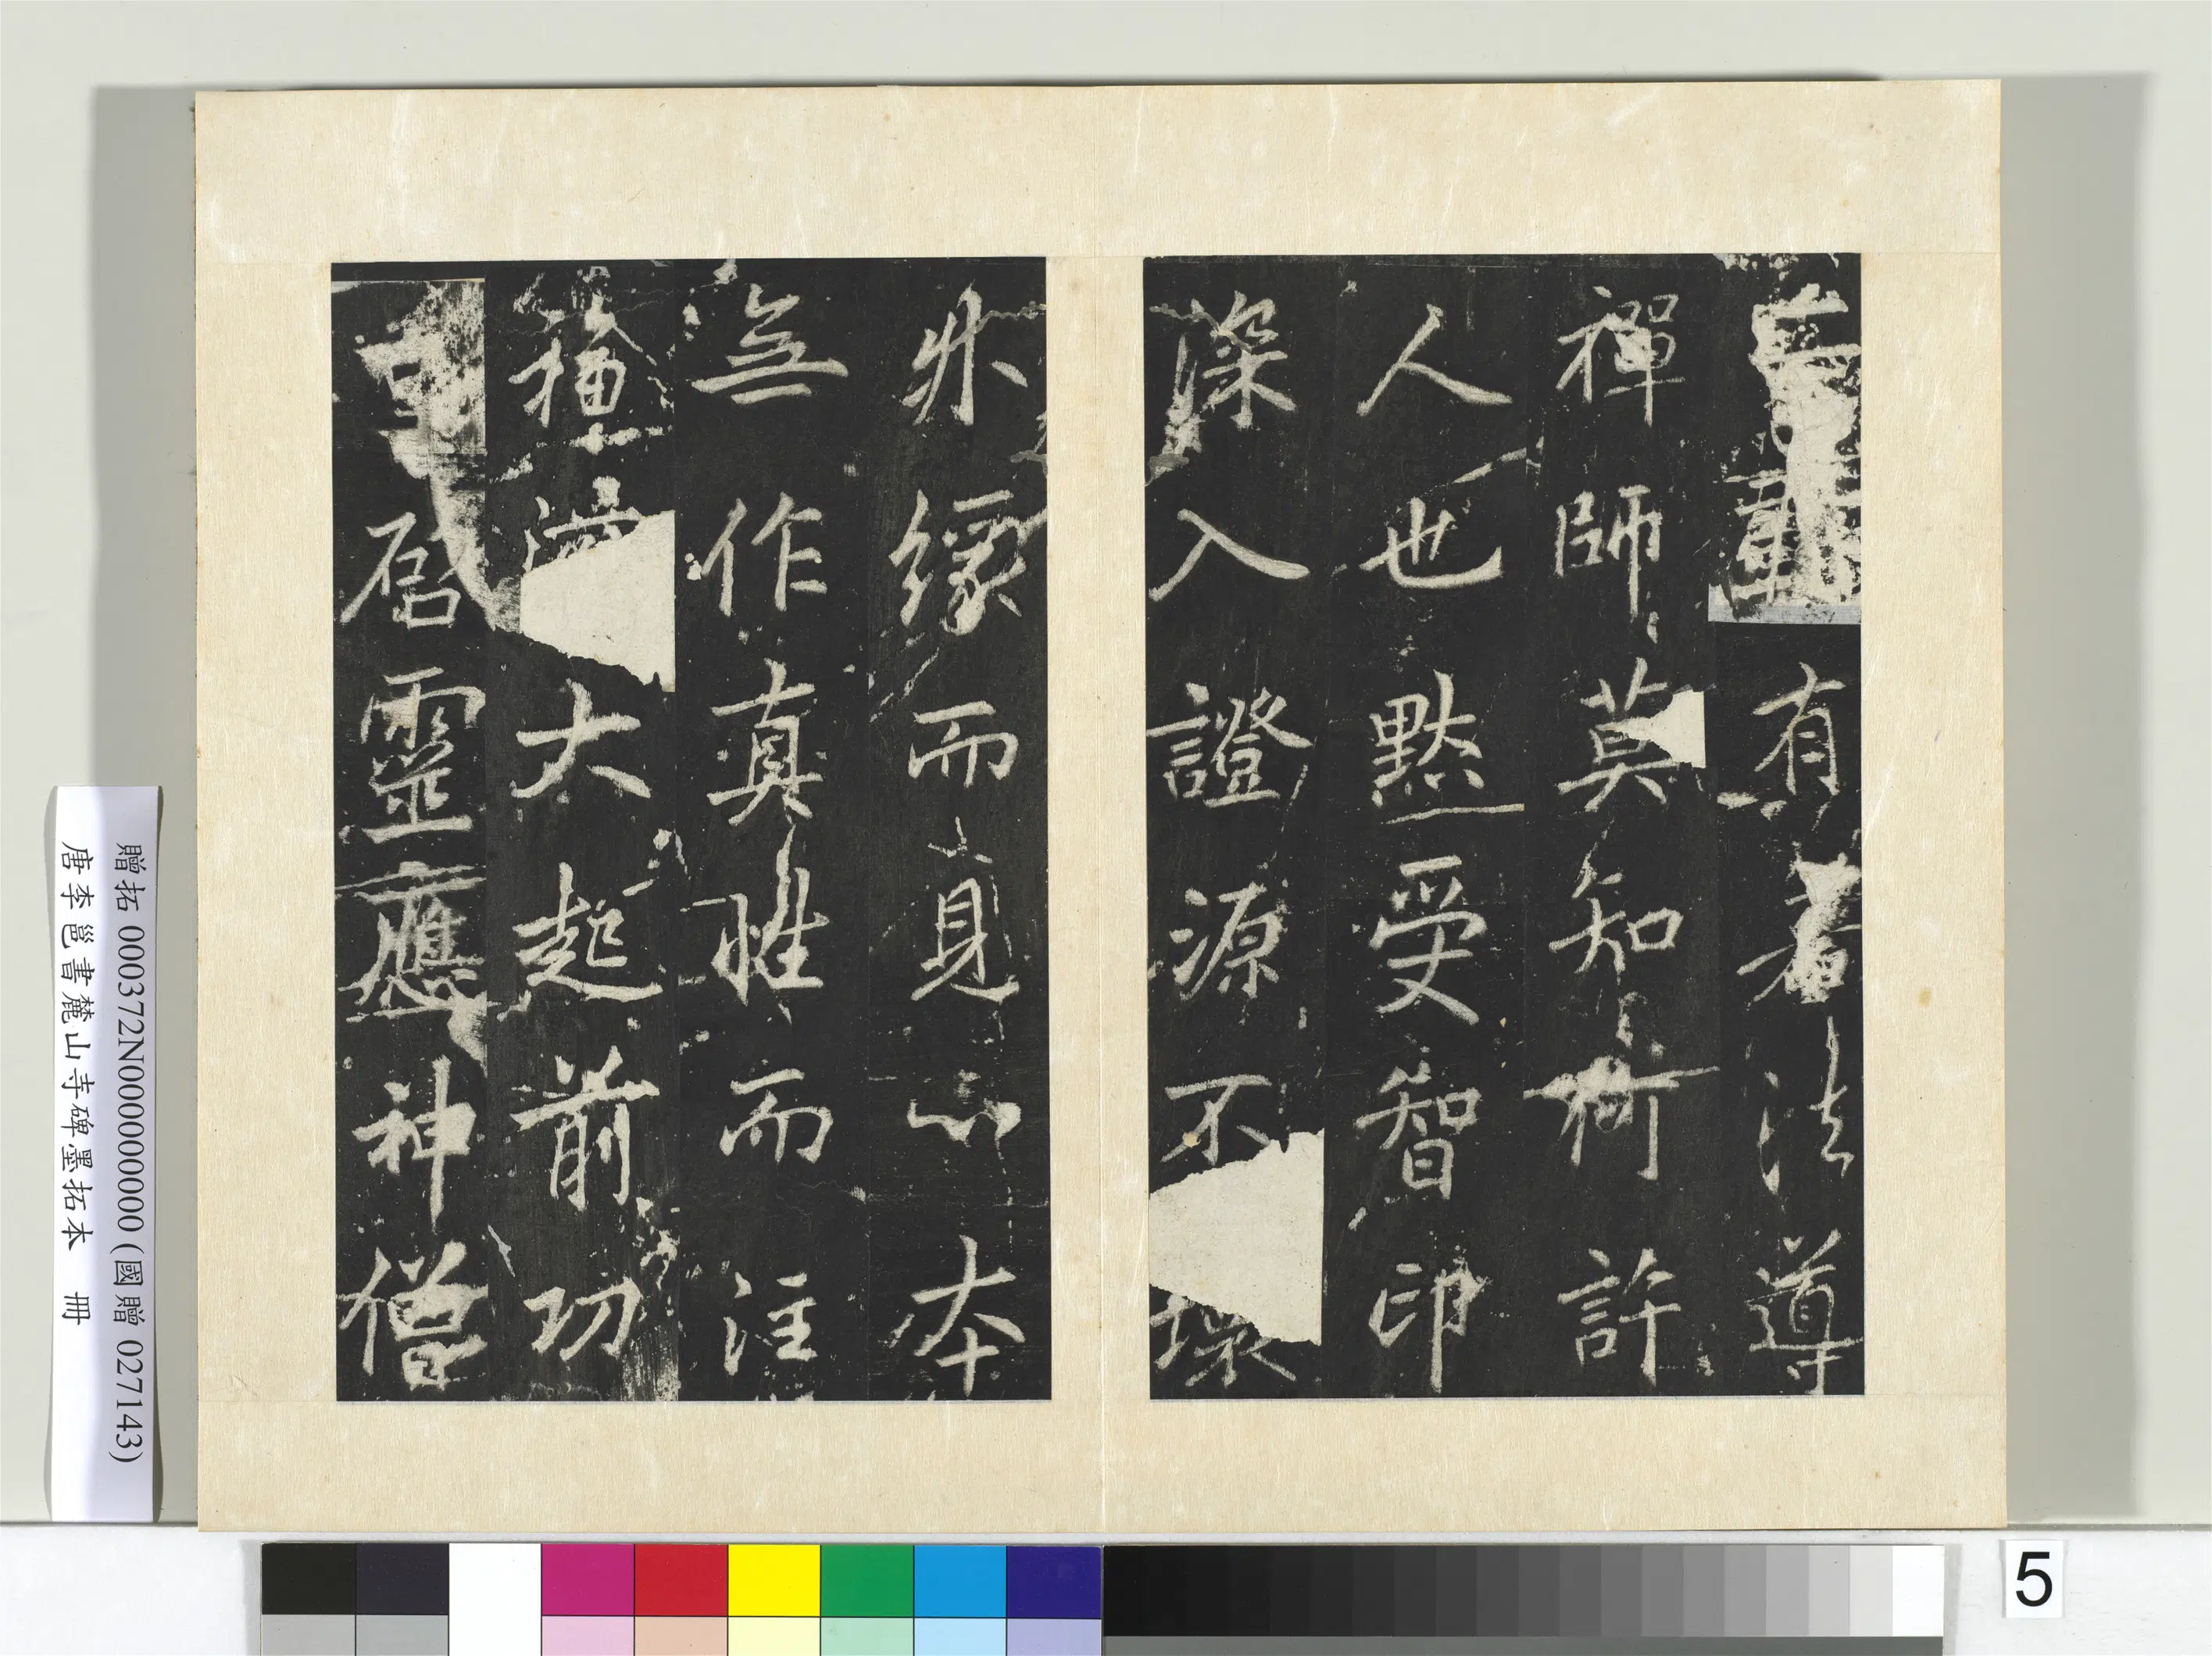 有著法導
禪師莫知何許
人也黙受智印
深入證源不壞
外緣而見心本
無作真性而注
大起前功
啓靈應神僧
贈拓 000372N000000000 (國贈 027143)
唐李邕書麓山寺碑墨拓本 冊
5